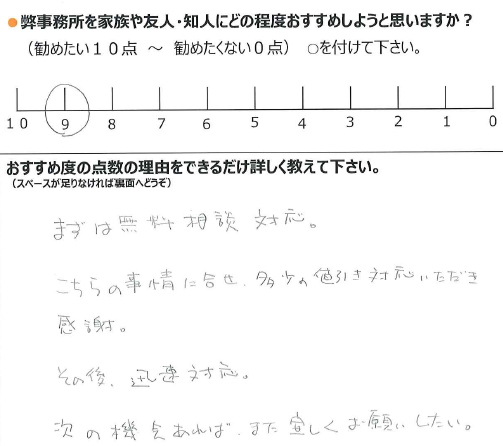 ●弊事務所を家族や友人・知人にどの程度おすすめしようと思いますか？
（勧めたい１０点　～　勧めたくない０点）　○を付けて下さい。
10 9 8 7 6 5 4 3 2 1 0
おすすめ度の点数の理由をできるだけ詳しく教えて下さい。
（スペースが足りなければ裏面へどうぞ）
まずは無料相談対応。
こちらの事情に合せ、多少の値引き対応いただき
感謝。
その後、迅速対応。
次の機会あれば、また宜しくお願いしたい。